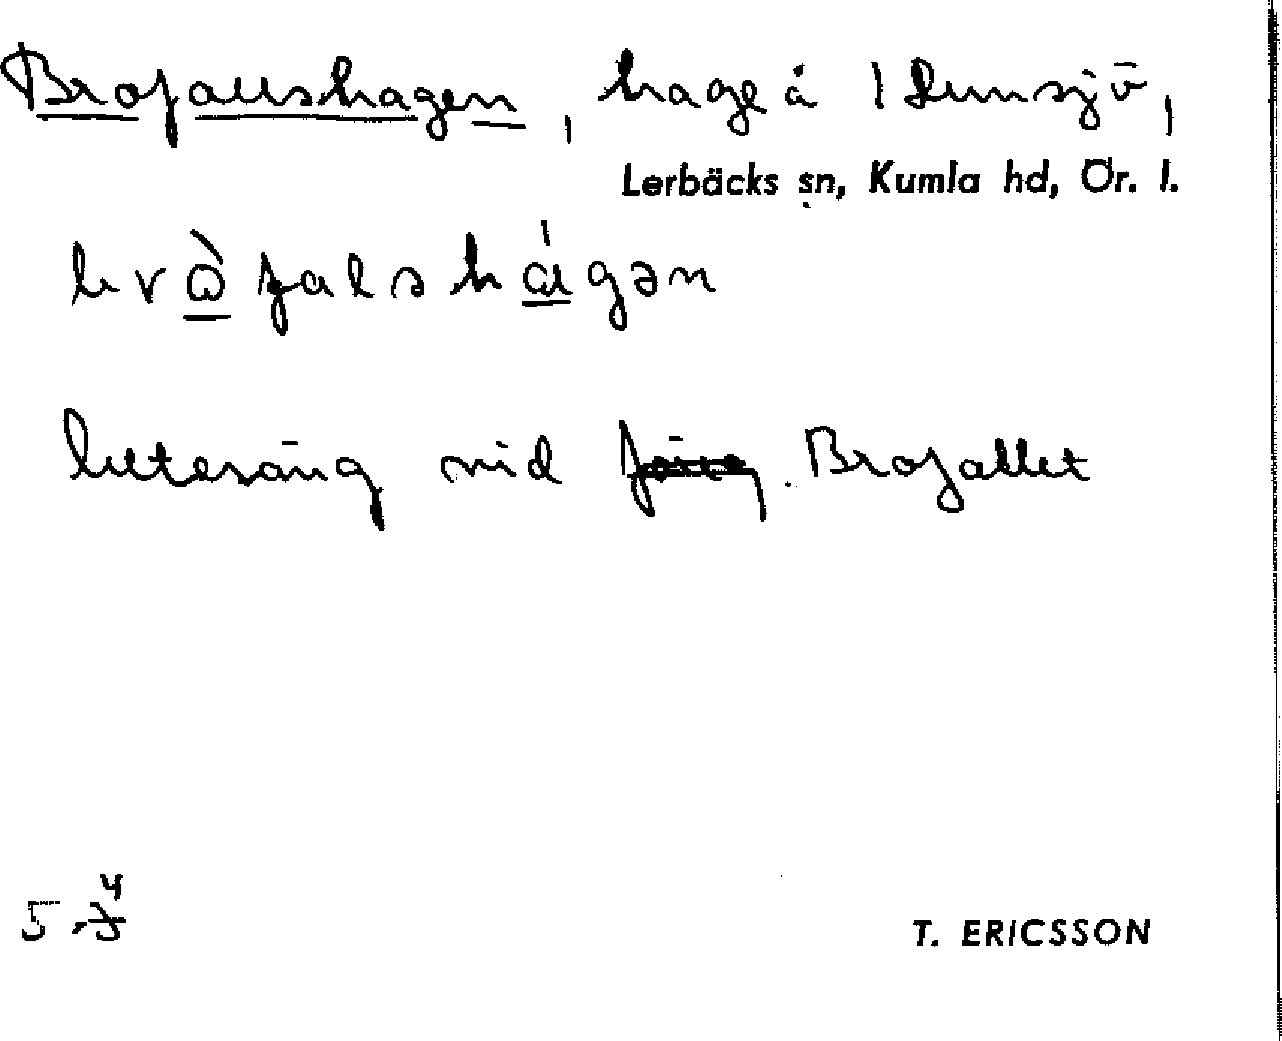 Brofallshagen, hage å 1 Dunsjö,
Lerbäcks sn, Kumla hd, Ör. l.
brò̱falshá̱gən
betesäng vid Brofallet
5.4
T. ERICSSON